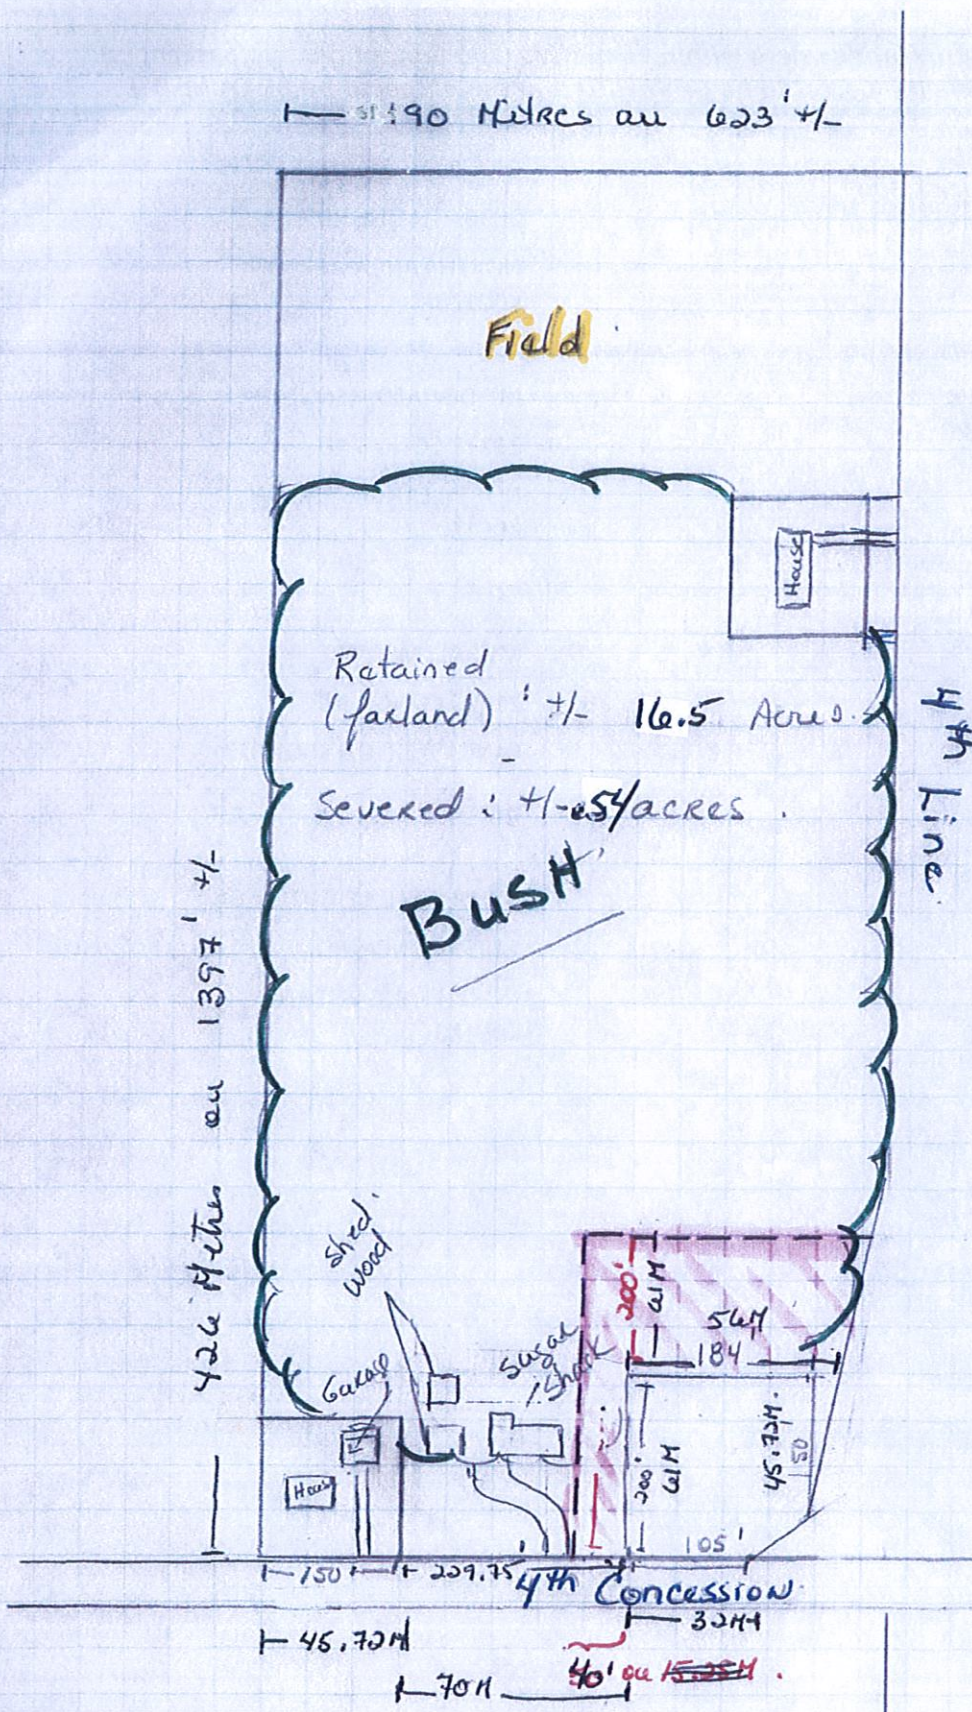 190 Metres ou 623' +/-
Field
House
Retained
(farland) : +/- 16.5 Acres.
-
Severed : +/- .54/acres.
BUSH
4th Line
426 Metres ou 1397' +/-
Shed
Wood
Garage
Sugar
Shack
200'
61M
56M
184
House
200'
61M
45.72M.
150
105'
150
229.75'
4th Concession
32M
45.72M
40' ou 15.25M.
70M